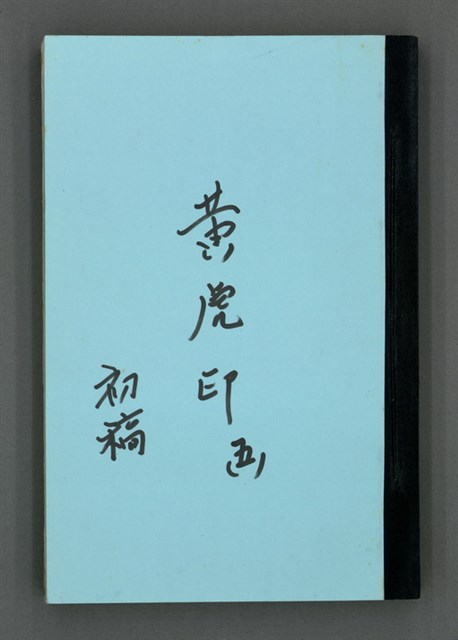 黃虎印㈤
初稿